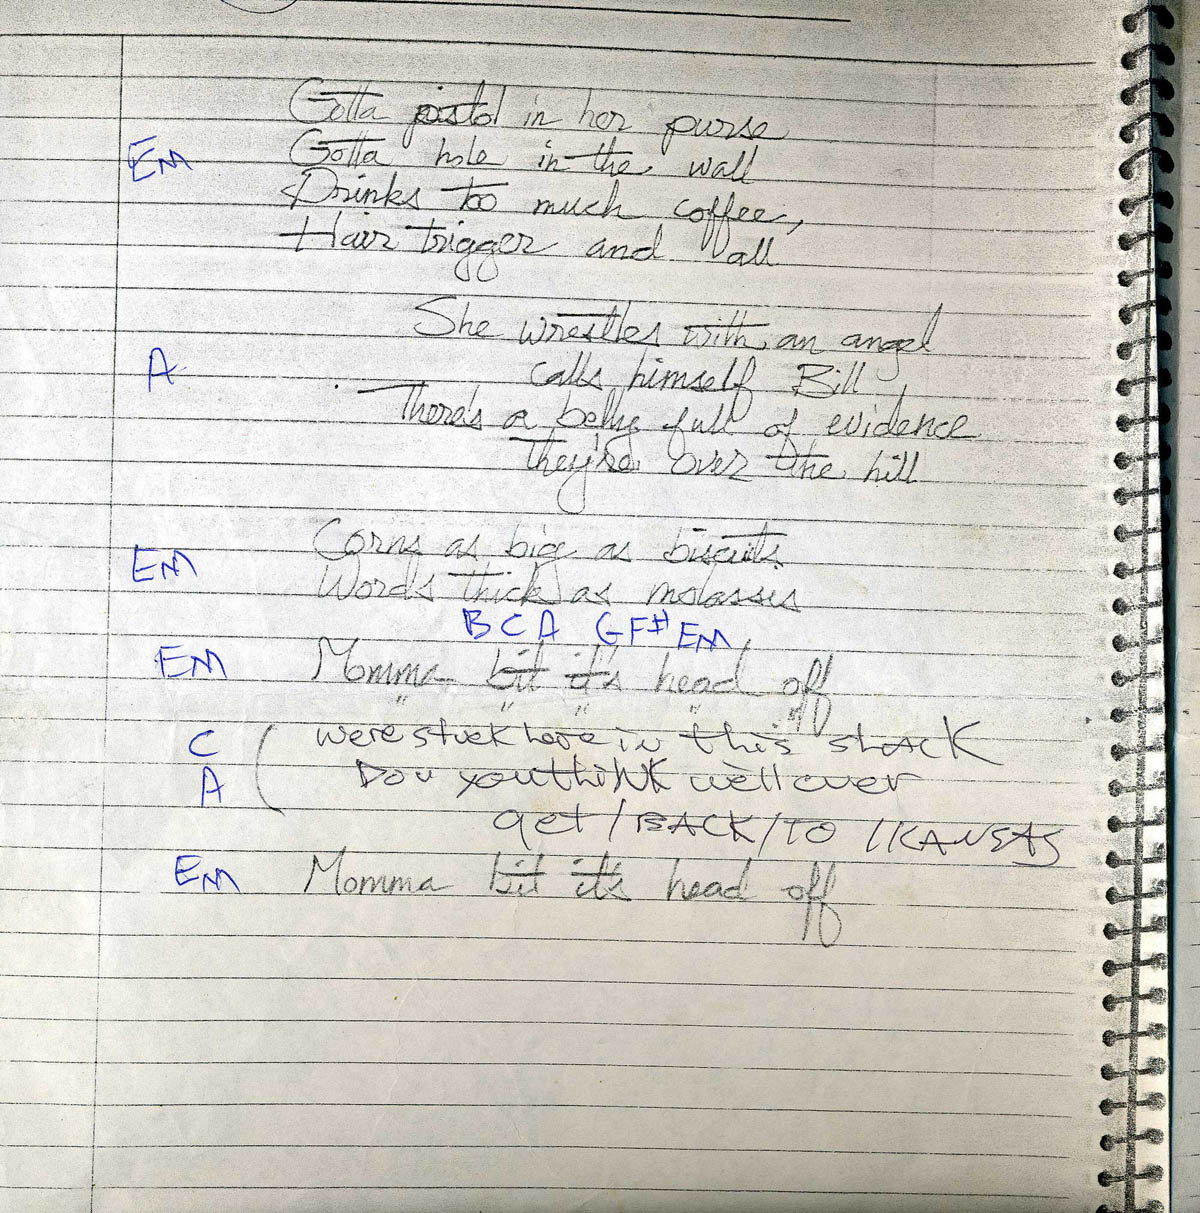 Gotta pistol in her purse
Em Gotta hole in the wall
Drinks too much coffee,
Hair trigger and all
She wrestles with an angel
A calls himself Bill
There's a belly full of evidence
They're over the hill
Corns as big as biscuits
Em Words thick as molasses
B C A G F# Em
Em Momma bit it's head off
" " " " "
C were stuck here in this shack
A Do u you think we'll ever
get / BACK / TO / KANSAS
Em Momma bit it's head off